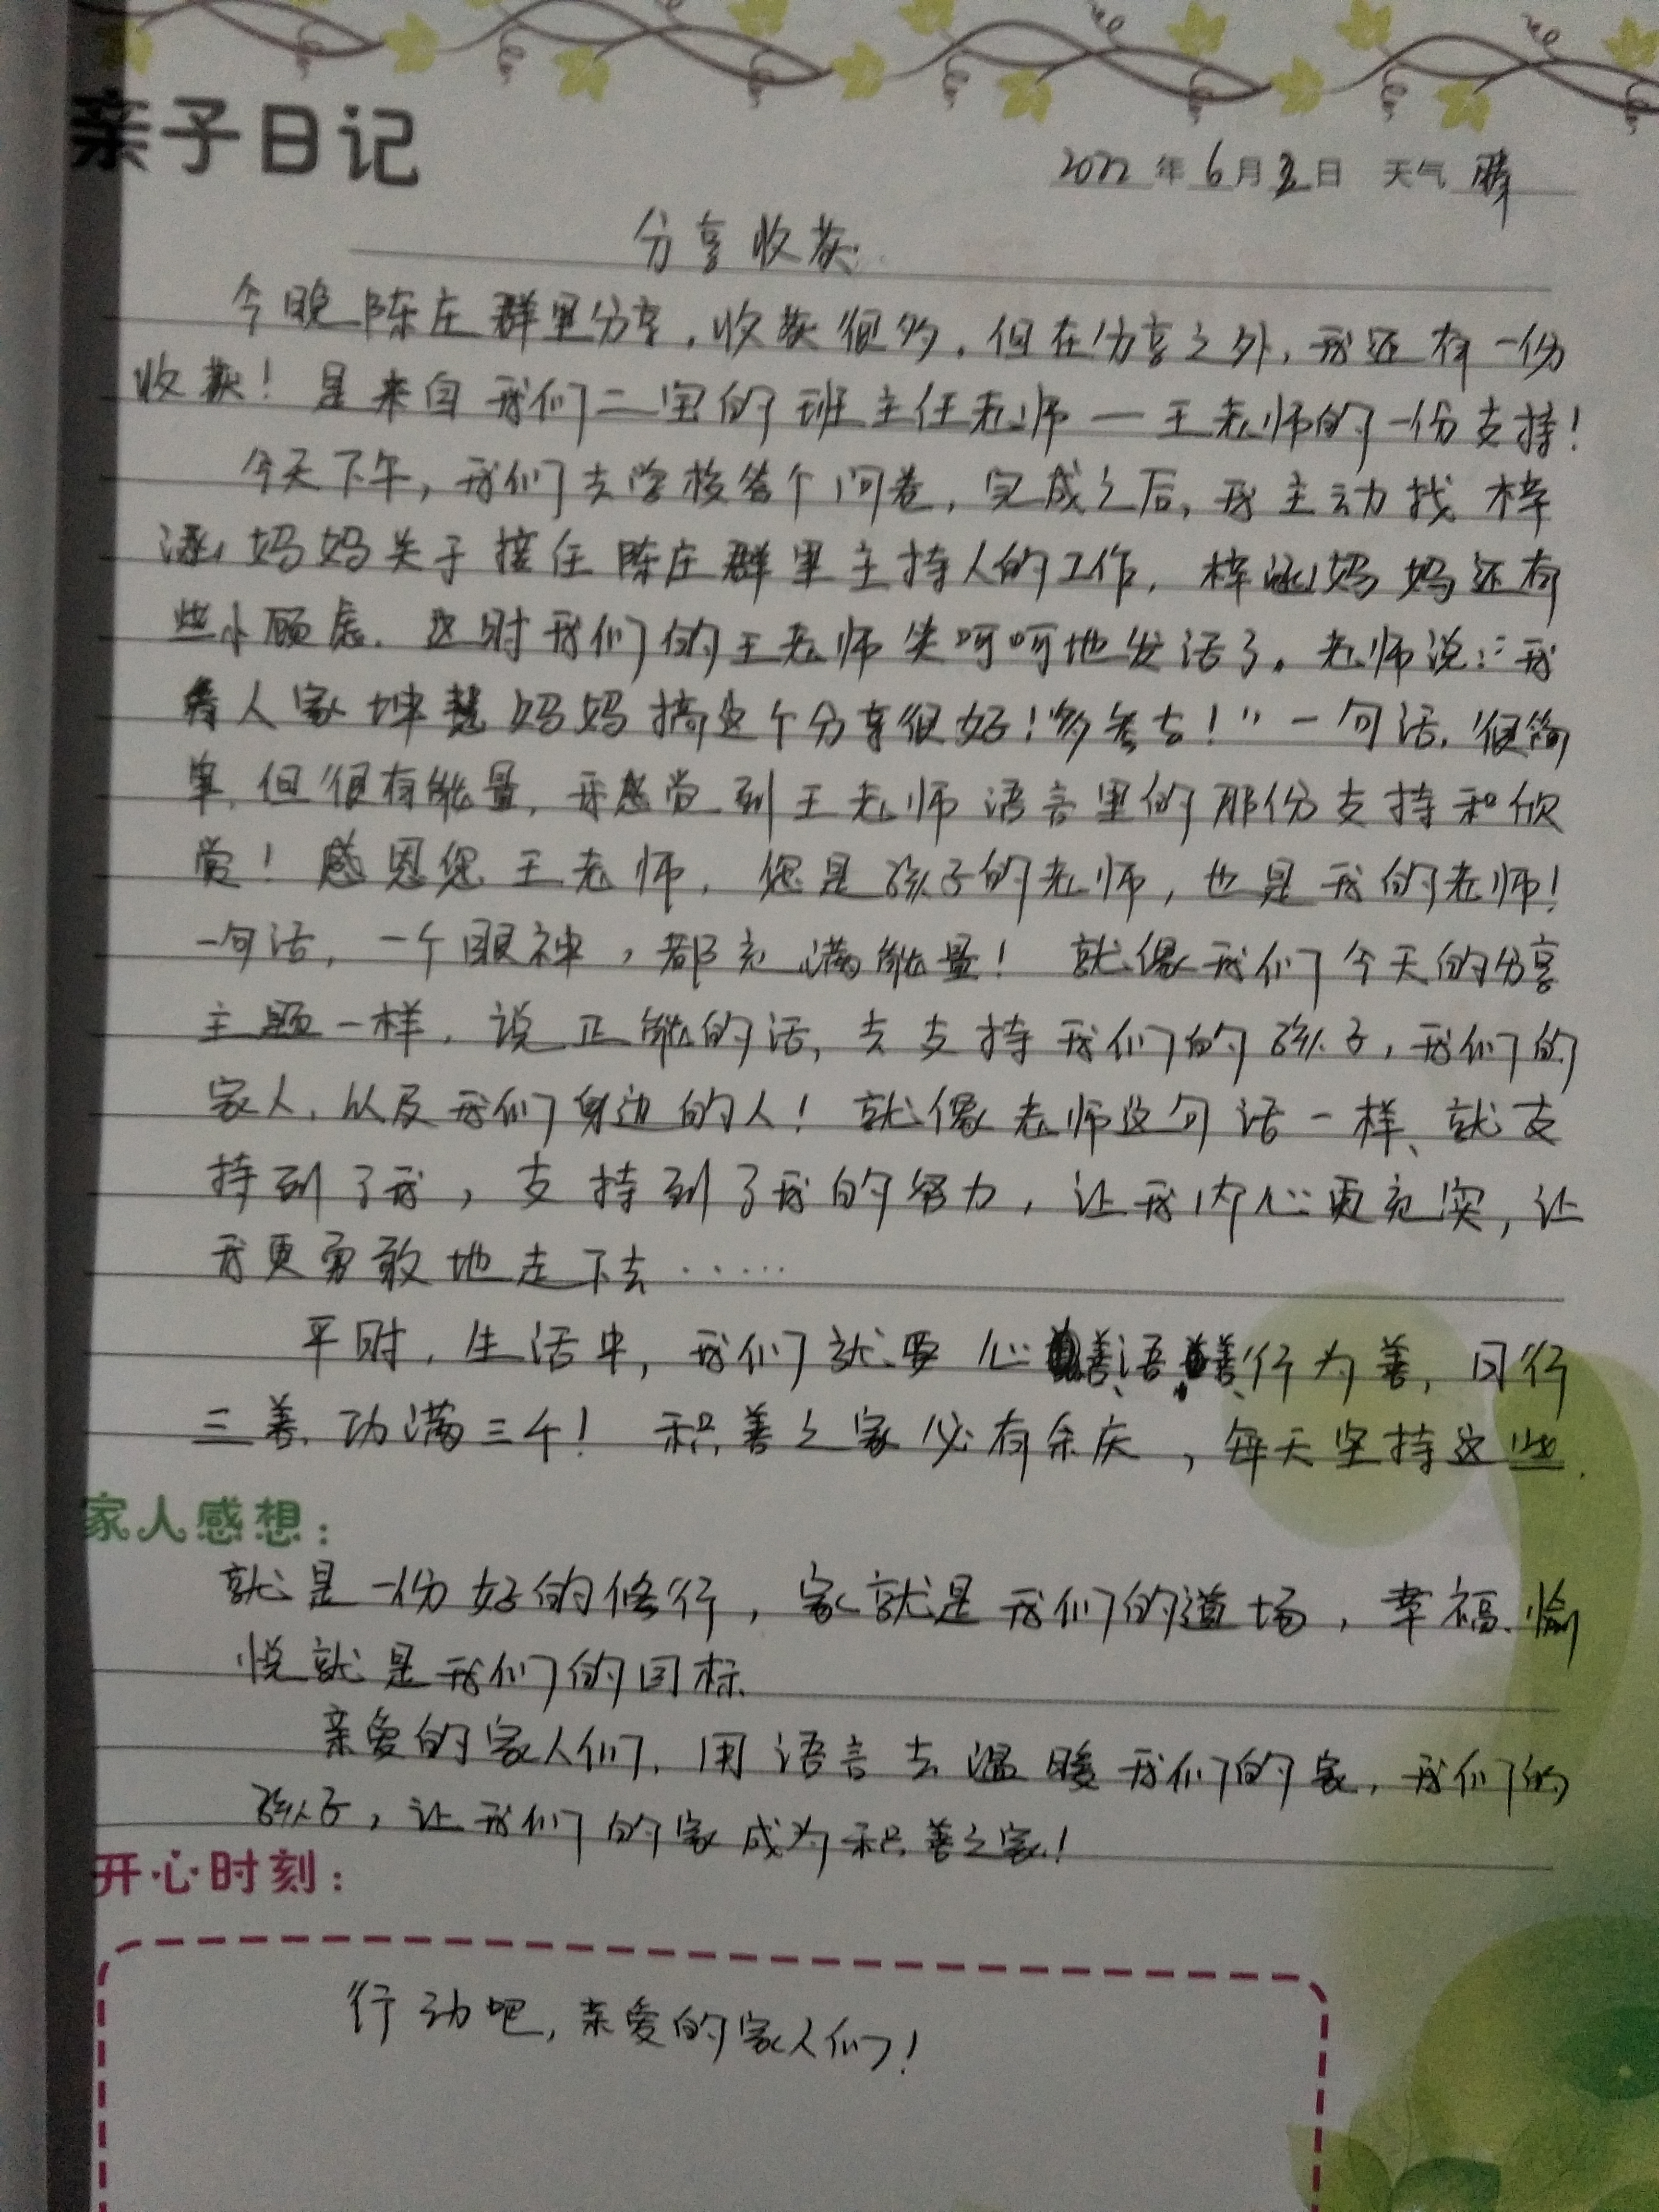 亲子日记
2022年6月2日 天气 晴
分享收获
今晚陈庄群里分享,收获很多,但在分享之外,我还有一份
收获!是来自我们二宝的班主任老师一王老师的一份支持!
今天下午,我们去学校答个问卷,完成之后,我主动找梓
涵妈妈关于接任陈庄群里主持人的工作,梓涵妈妈还有
些小顾虑.这时我们的王老师笑呵呵地发话了。老师说:“我
看人家坤慧妈妈搞这个分享很好!”一句话,很简
单,但很有能量,我感觉到王老师语言里的那份支持和欣
赏!感恩您王老师,您是孩子的老师,也是我的老师!
一句话,一个眼神,都充满能量!就像我们今天的分享
主题一样,说正能的话,去支持我们的孩子,我们的
家人,以及我们身边的人!就像老师这句话一样、就支
持到了我,支持到了我的努力,让我内心更充实,让
我更勇敢地走下去……
平时,生活中,我们就要心善、语善、行为善,日行
三善,功满三千!积善之家必有余庆,每天坚持这些,
家人感想:
就是一份好的修行,家就是我们的道场,幸福、愉
悦就是我们的目标.
亲爱的家人们,用语言去温暖我们的家,我们的
孩子,让我们的家成为积善之家!
开心时刻:
行动吧,亲爱的家人们!